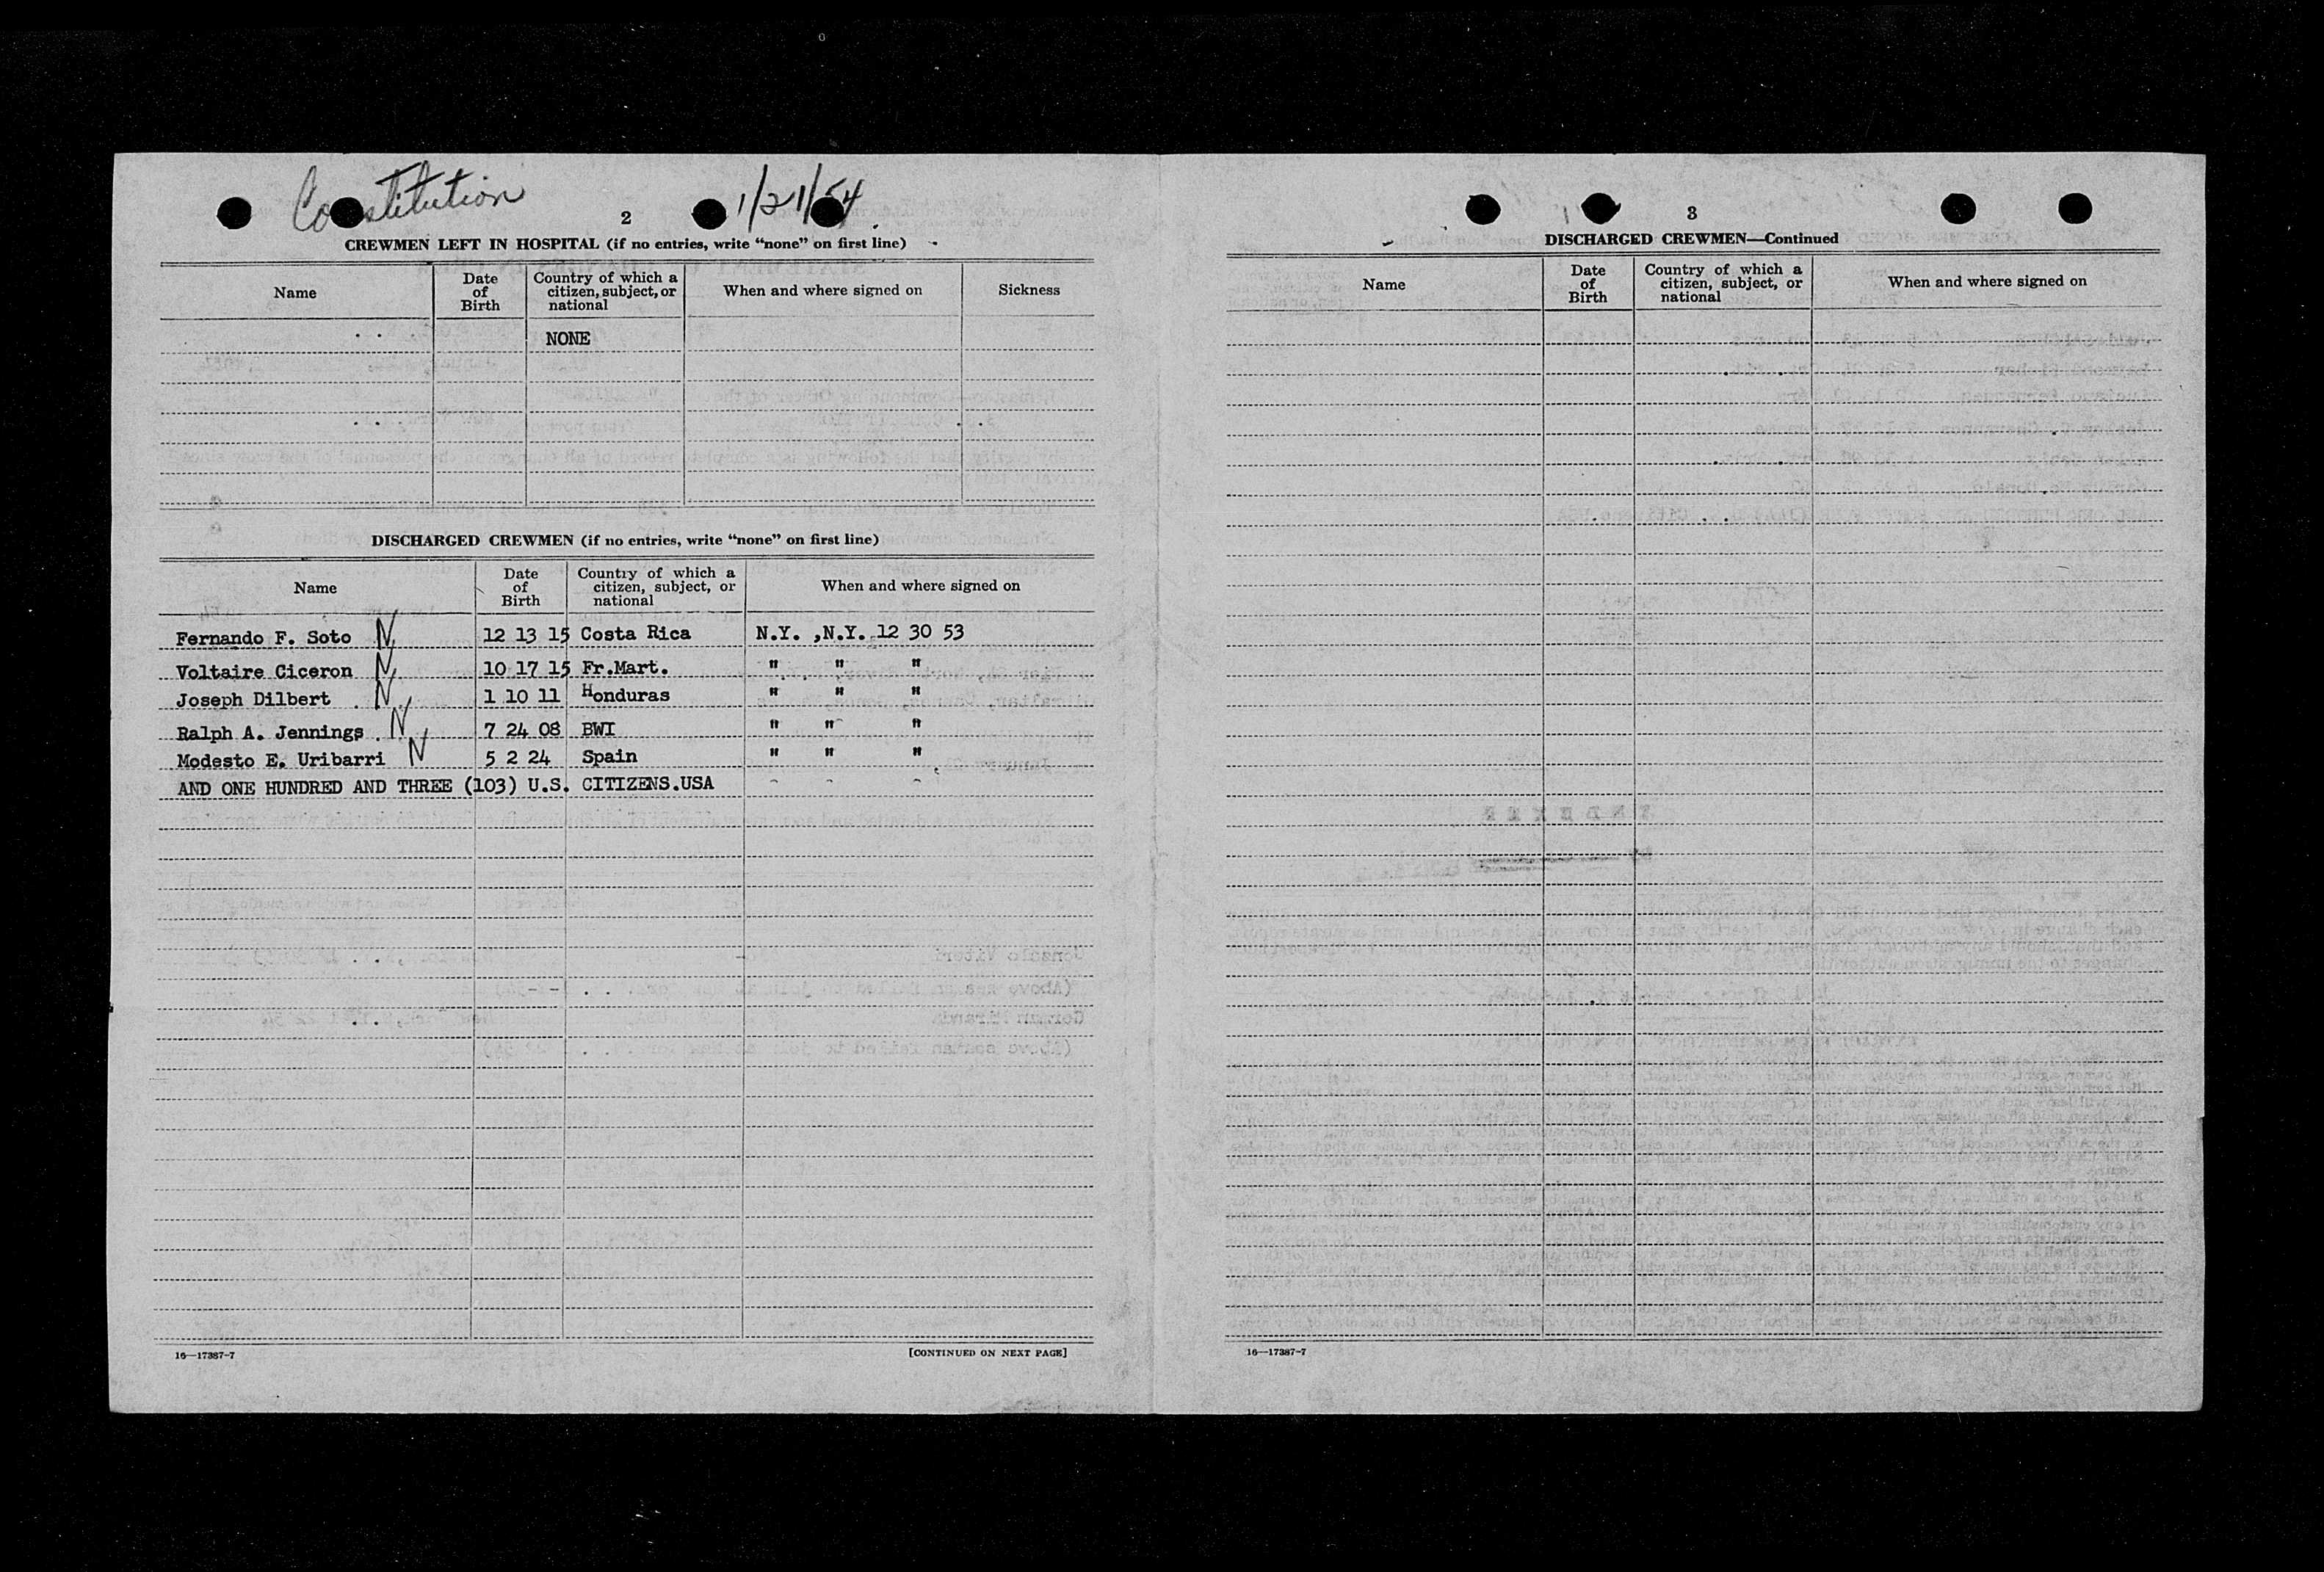 Constitution
1/21/54
2
CREWMEN LEFT IN HOSPITAL (if no entries, write “none” on first line)
Name Date of Birth Country of which a citizen, subject, or national When and where signed on Sickness
NONE
DISCHARGED CREWMEN (if no entries, write “none” on first line)
Name Date of Birth Country of which a citizen, subject, or national When and where signed on
Fernando F. Soto N 12 13 15 Costa Rica N.Y. ,N.Y. 12 30 53
Voltaire Ciceron N 10 17 15 Fr.Mart. " " "
Joseph Dilbert N 1 10 11 Honduras " " "
Ralph A. Jennings N 7 24 08 BWI " " "
Modesto E. Uribarri N 5 2 24 Spain " " "
AND ONE HUNDRED AND THREE (103) U.S. CITIZENS.USA
16—17387-7 [CONTINUED ON NEXT PAGE]
3
DISCHARGED CREWMEN—Continued
Name Date of Birth Country of which a citizen, subject, or national When and where signed on
16—17387-7